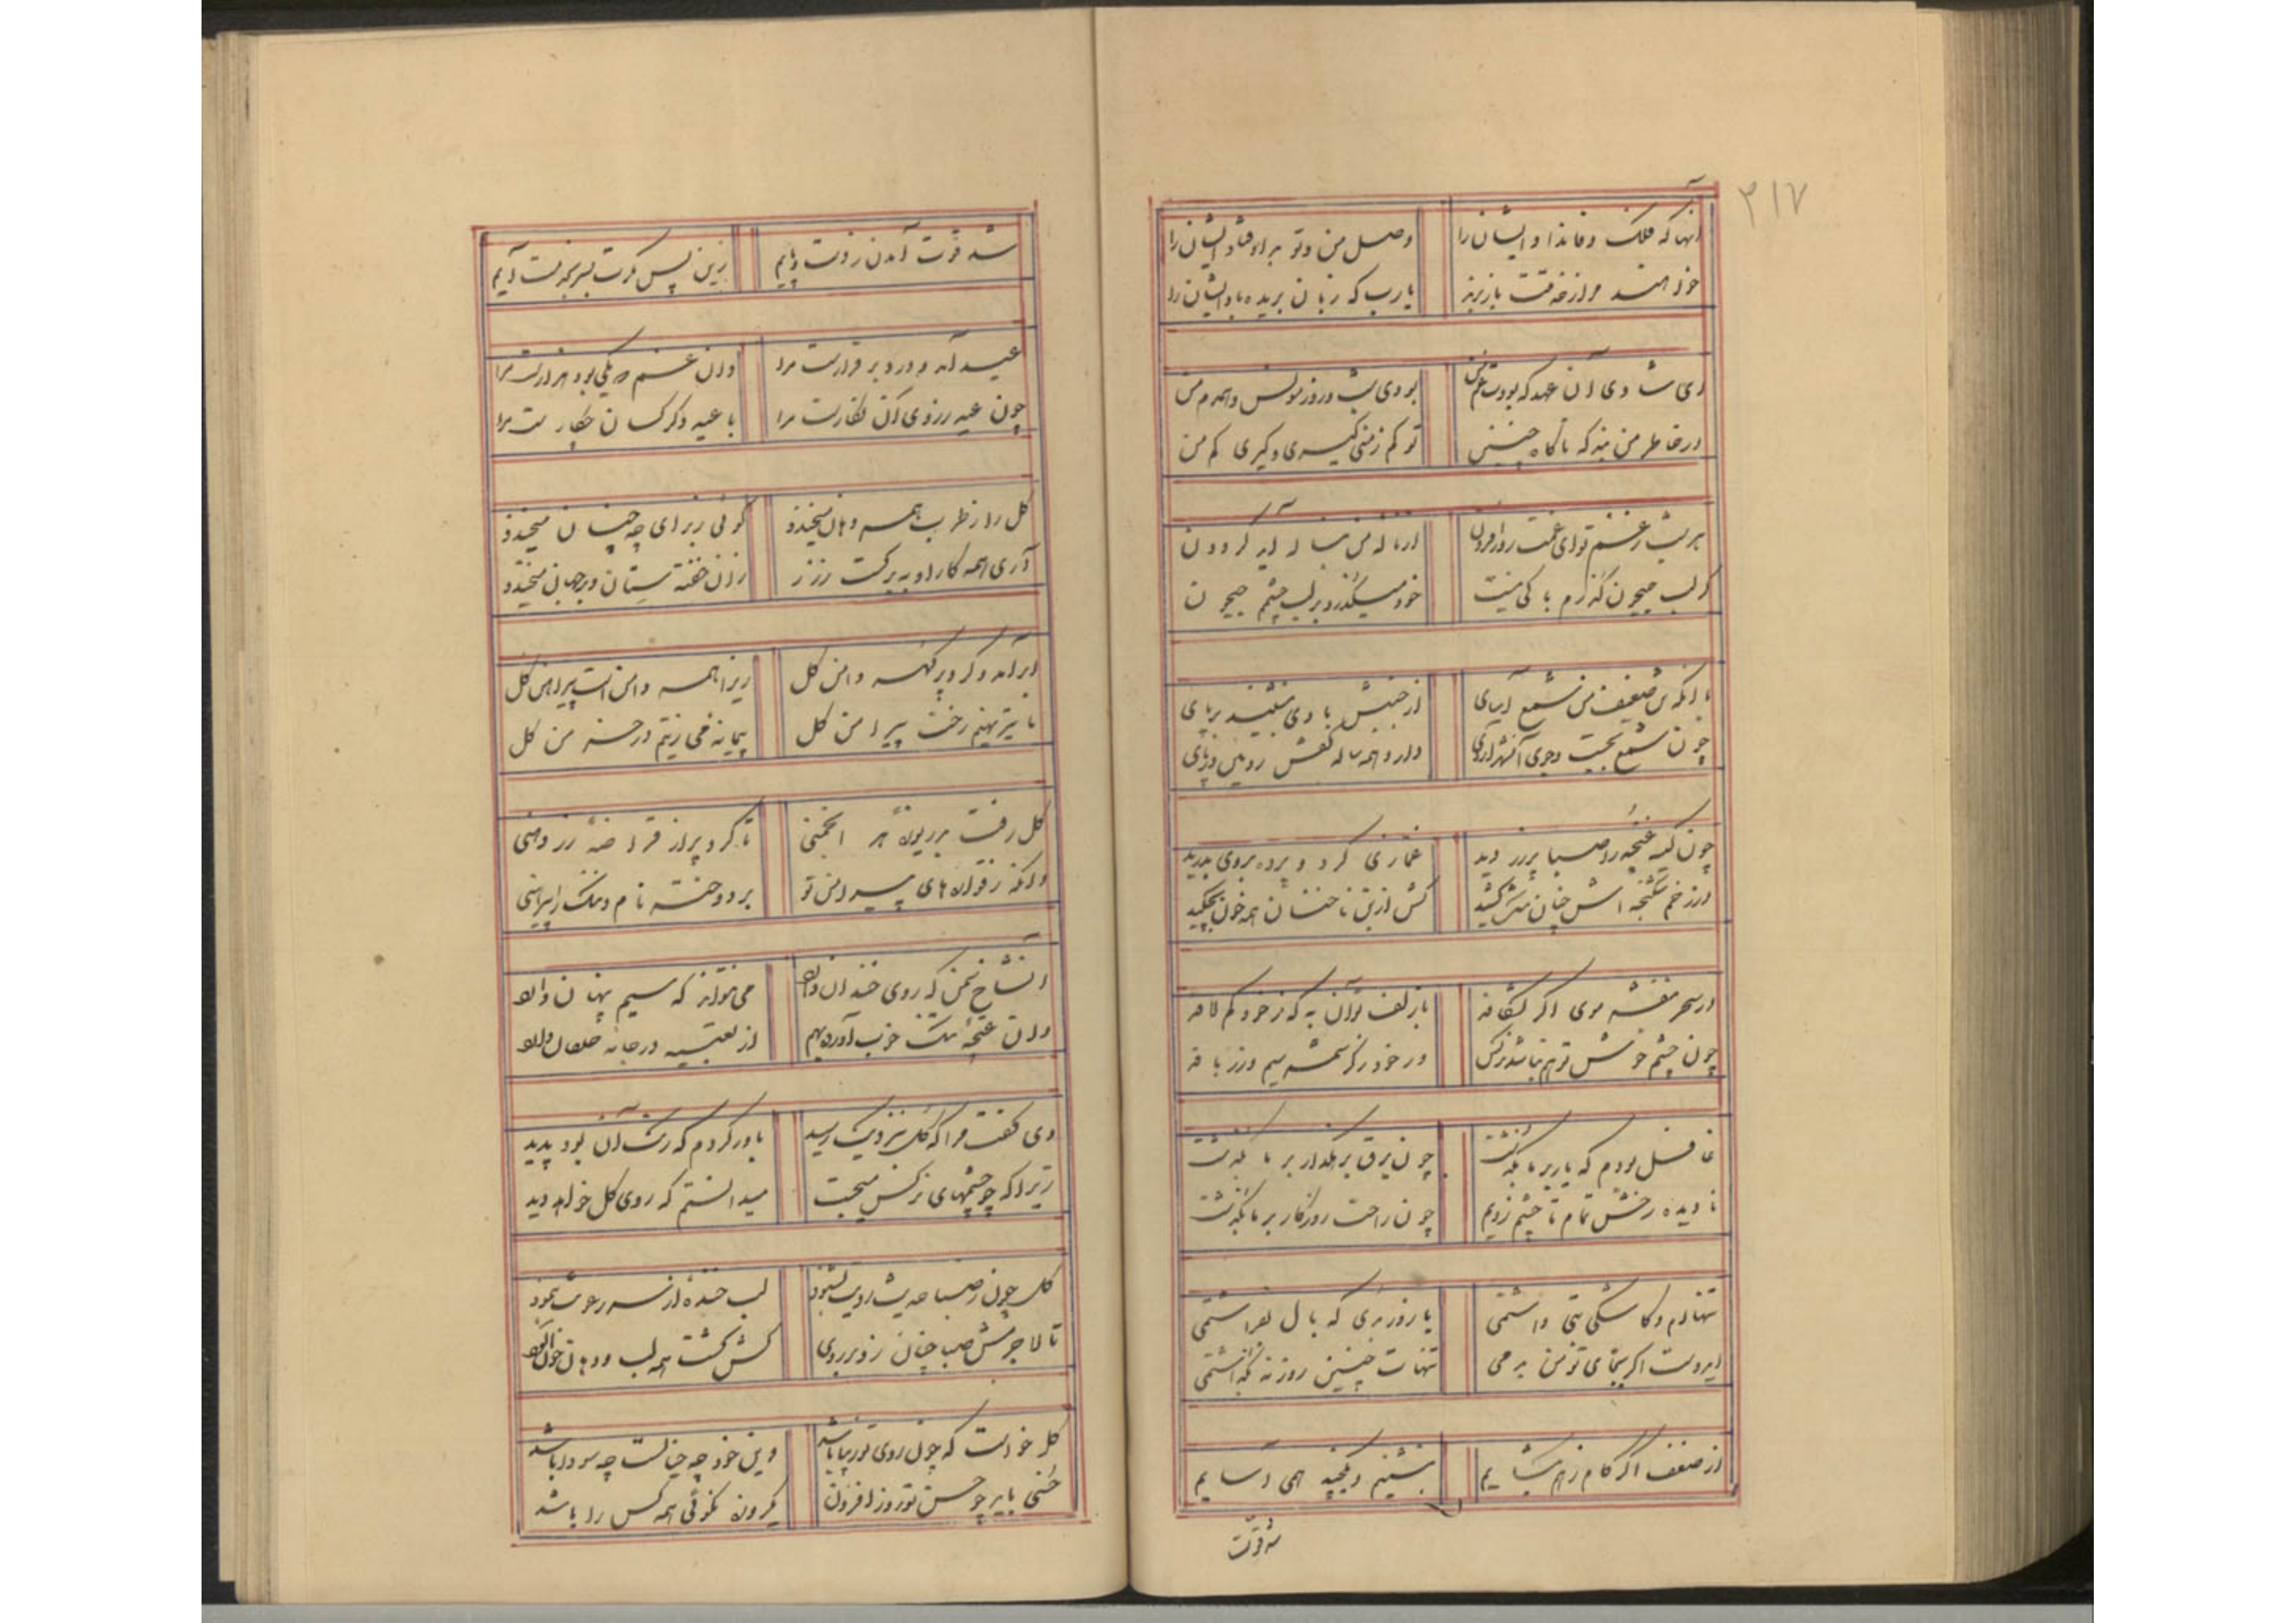 ۳۱۷
آنها که فلک وفا نداد ایشان را وصل من و تو بر اوفتاد ایشان را
خواهند مرا ز خدمتت باز برند یارب که زبان بریده باد ایشان را
ای شادی آن عهد که بودت غم من بودی شب و روز مونس و همدم من
در خاطر من نبد که ناگاه چنین تو کم زمنی گیری و گیری کم من
هر شب ز غم تو ای غمت روزافزون از ناله من بناله آید گردون
گر لب جیحون گذرم باکی نیست خود میگذرد بر لب چشمم جیحون
با آنکه ضعیفم من شمع آسای از جنبش بادی بنشیند بر پای
چون شمع بجست وجوی دارد همه ساله کفش رویین در پای
چون کیسه غنچه را صبا پر زر دید غمازی کرد و پرده بروی بدرید
وز زخم شکنجه اش چنان کش از بن ناخنان همه خون بچکید
در سحر بنفشه موی اگر بشکافد با زلف تو آن به که ز خود کم لافد
چون چشم خوشش تو هم نباشد نرگس ور خود ز کرشمه سیم و زر بافد
غافل بودم که یار بر ما بگذشت چون برق بر گذار بر ما بگذشت
نادیده رخش تمام تا چشم زدیم چون راحت روزگار بر ما بگذشت
تنها دلم و کاشکی بتی داشتمی یا روز بدی که یا ل نفراشتمی
ایدوست اگر بجای تو من بدمی تنهات چنین روز نه بگذاشتمی
از ضعف اگر گام ز هم بگشایم بنشینم و یکچند همی آسایم
شد قوّت
شد قوّت آمدن ز دست و پایم زین پس گرت بسر بخدمت آیم
عید آمد و درد برقرارست مرا وان غم که یکی بود هزارست مرا
چون عید رزوی آن نگارست مرا با عید دگر کسان چکارست مرا
گل را ز طرب همه دهان میخندد گوئی ز برای چه چنان میخندد
آری همه کار او به برگست و زر زان خفته ستان و بر جهان میخندد
ابر آمد و کرد پر گهر دامن گل زیرا همه دامن است پیراهن گل
تا نیز نهیم رخت پیرامن گل پیمانه می زنیم در خرمن گل
گل رفت بدریوزهٔ هر انجمنی تا کرد پر از قراضه زر دهنی
وانگه ز قواره های پیراهن تو بردوخته نام و ننگ را پیرهنی
آن شاخ سمن که روی خندان دارد می نتواند که سیم پنهان دارد
وان غنچهٔ تنگ خوب آورده بهم از تعبیه در خانه خلقان دارد
دی گفت مرا که گل بنزدیک رسید باور کردم که رنگ آن بود پدید
زیرا که چو چشمهای نرگس میجست میدانستم که روی گل خواهد دید
گل چون ز صبا حدیث رویت بشنود لب خنده از سر رعونت بنمود
تا لاجرمش صبا چنان زد بر روی کش گشت همه لب و دهان خون آلود
گل خواست که چون روی تو زیبا باشد وین خود چه خیالست چه سودا باشد
حسنی باید چو حسن تو روزافزون یکرونه نکوئی همه کس را باشد